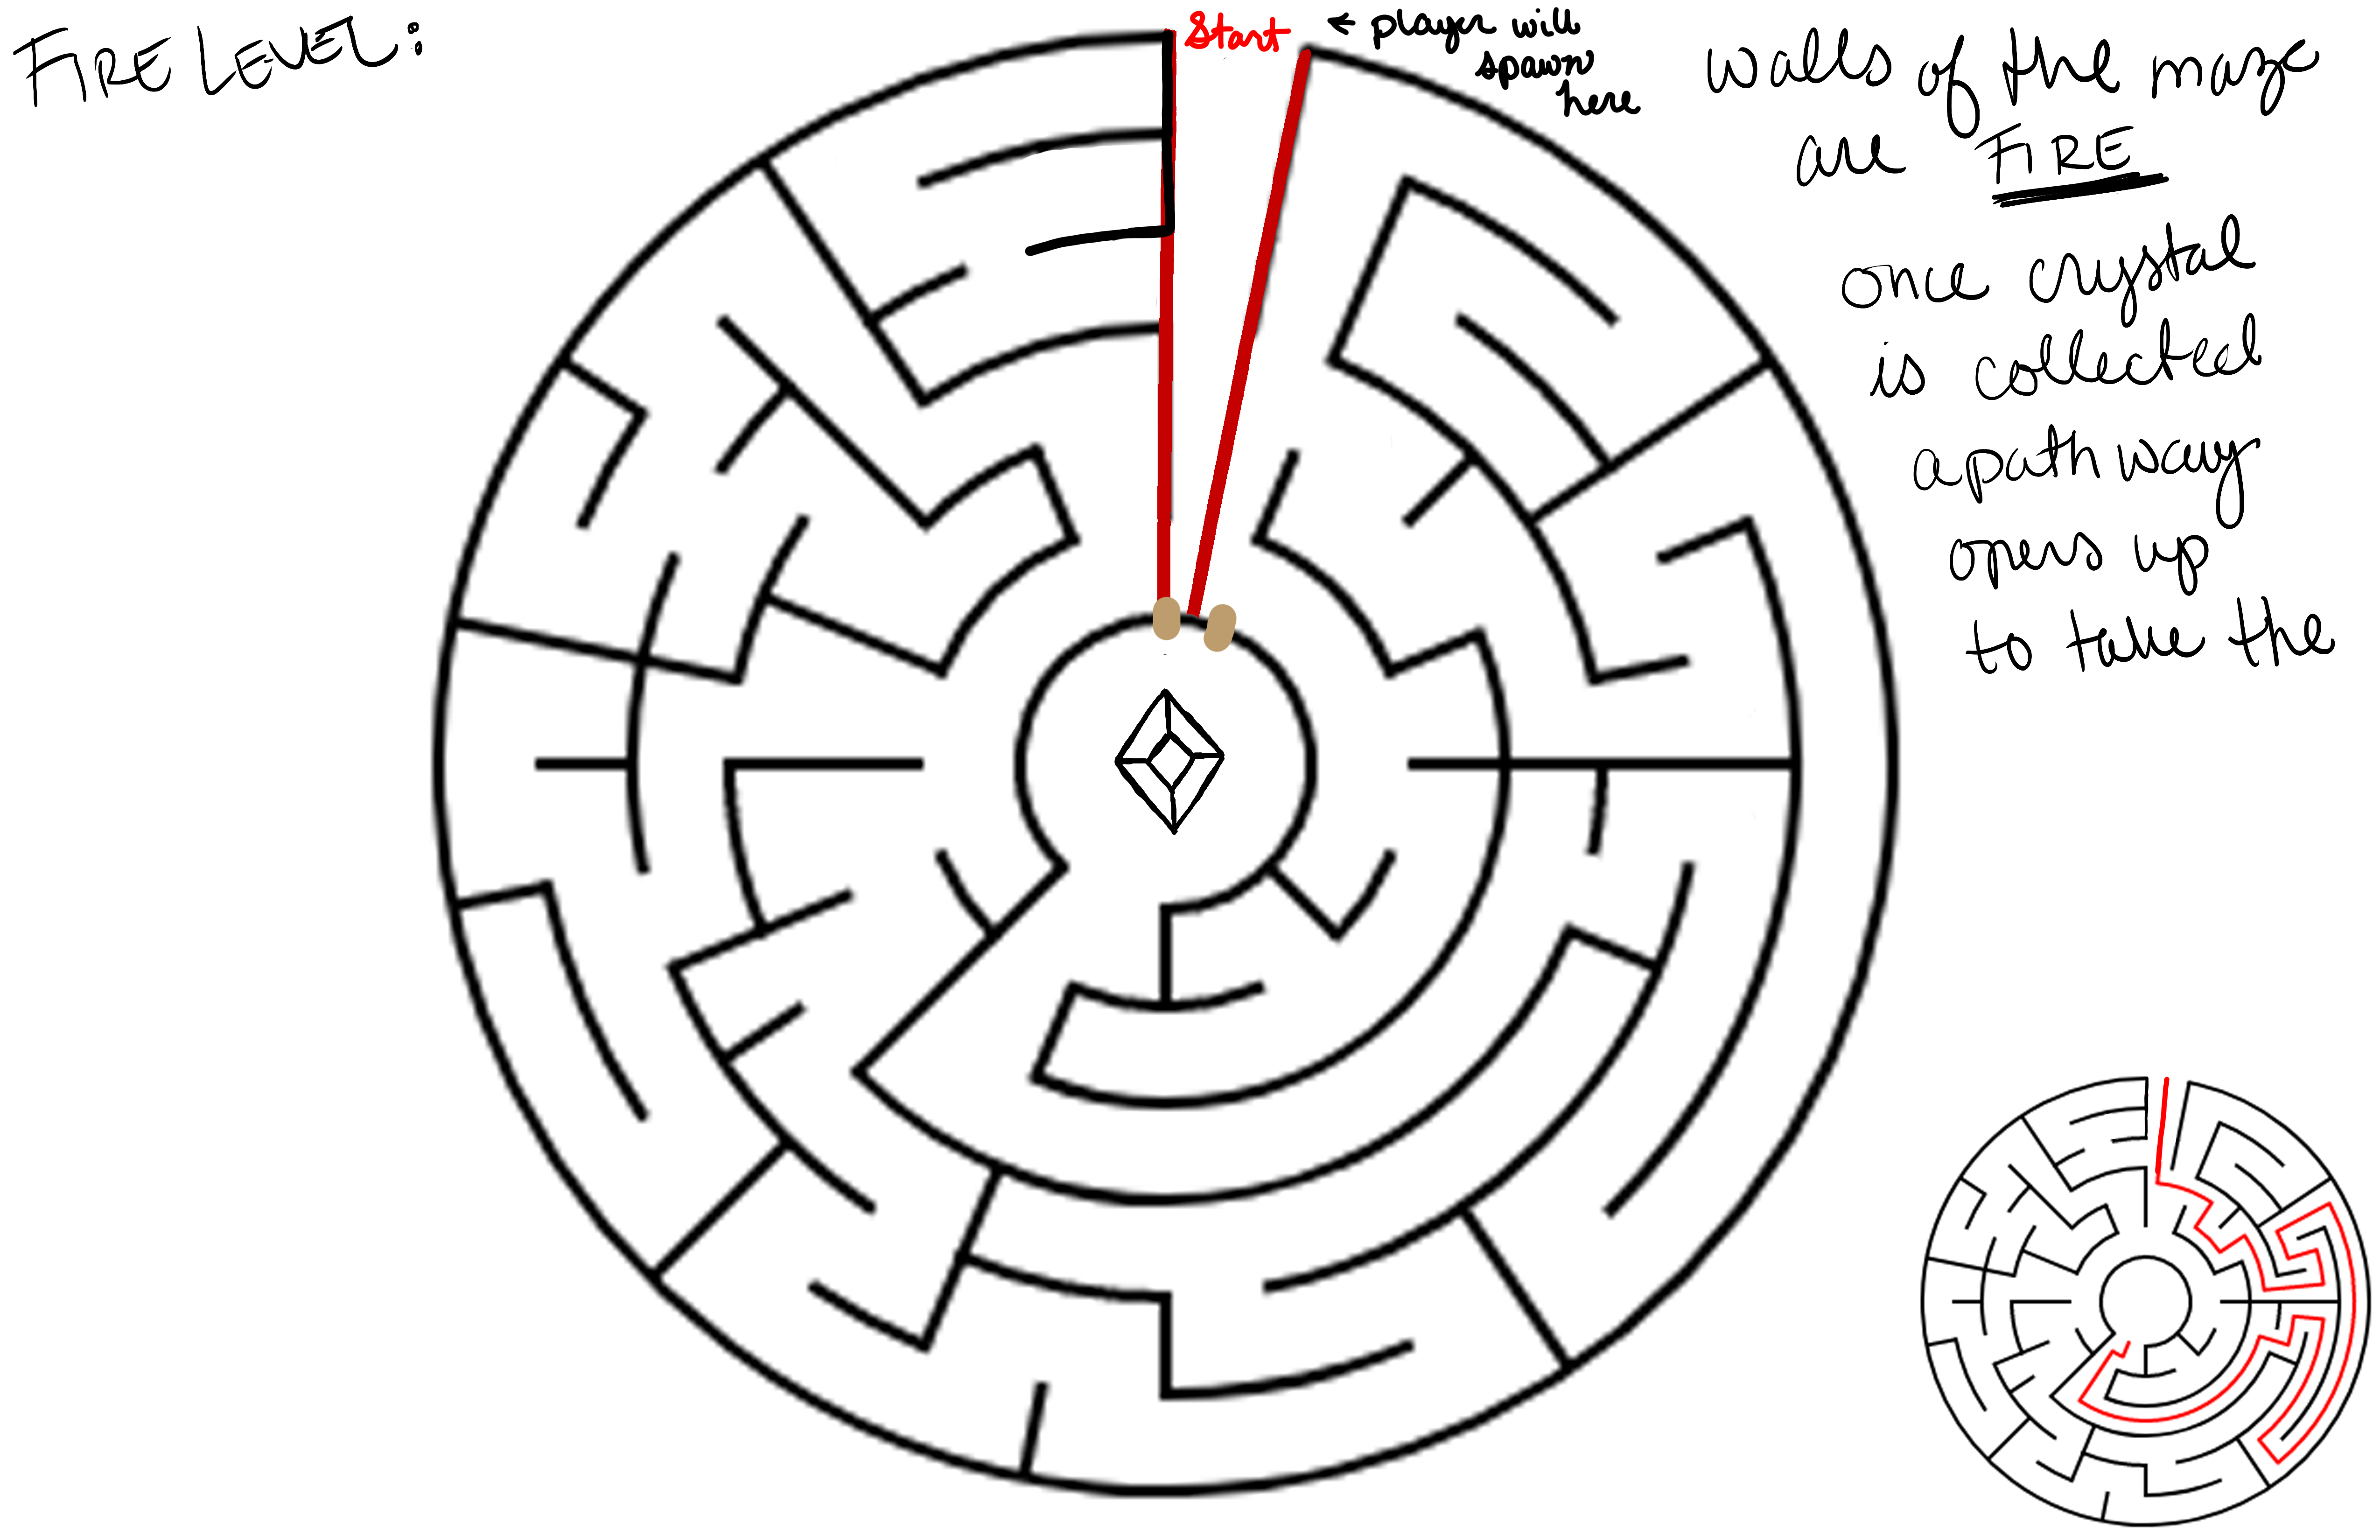 FIRE LEVEL:
Start
← player will
spawn
here
walls of the maze
are FIRE
once crystal
is collected
a path way
opens up
to take the